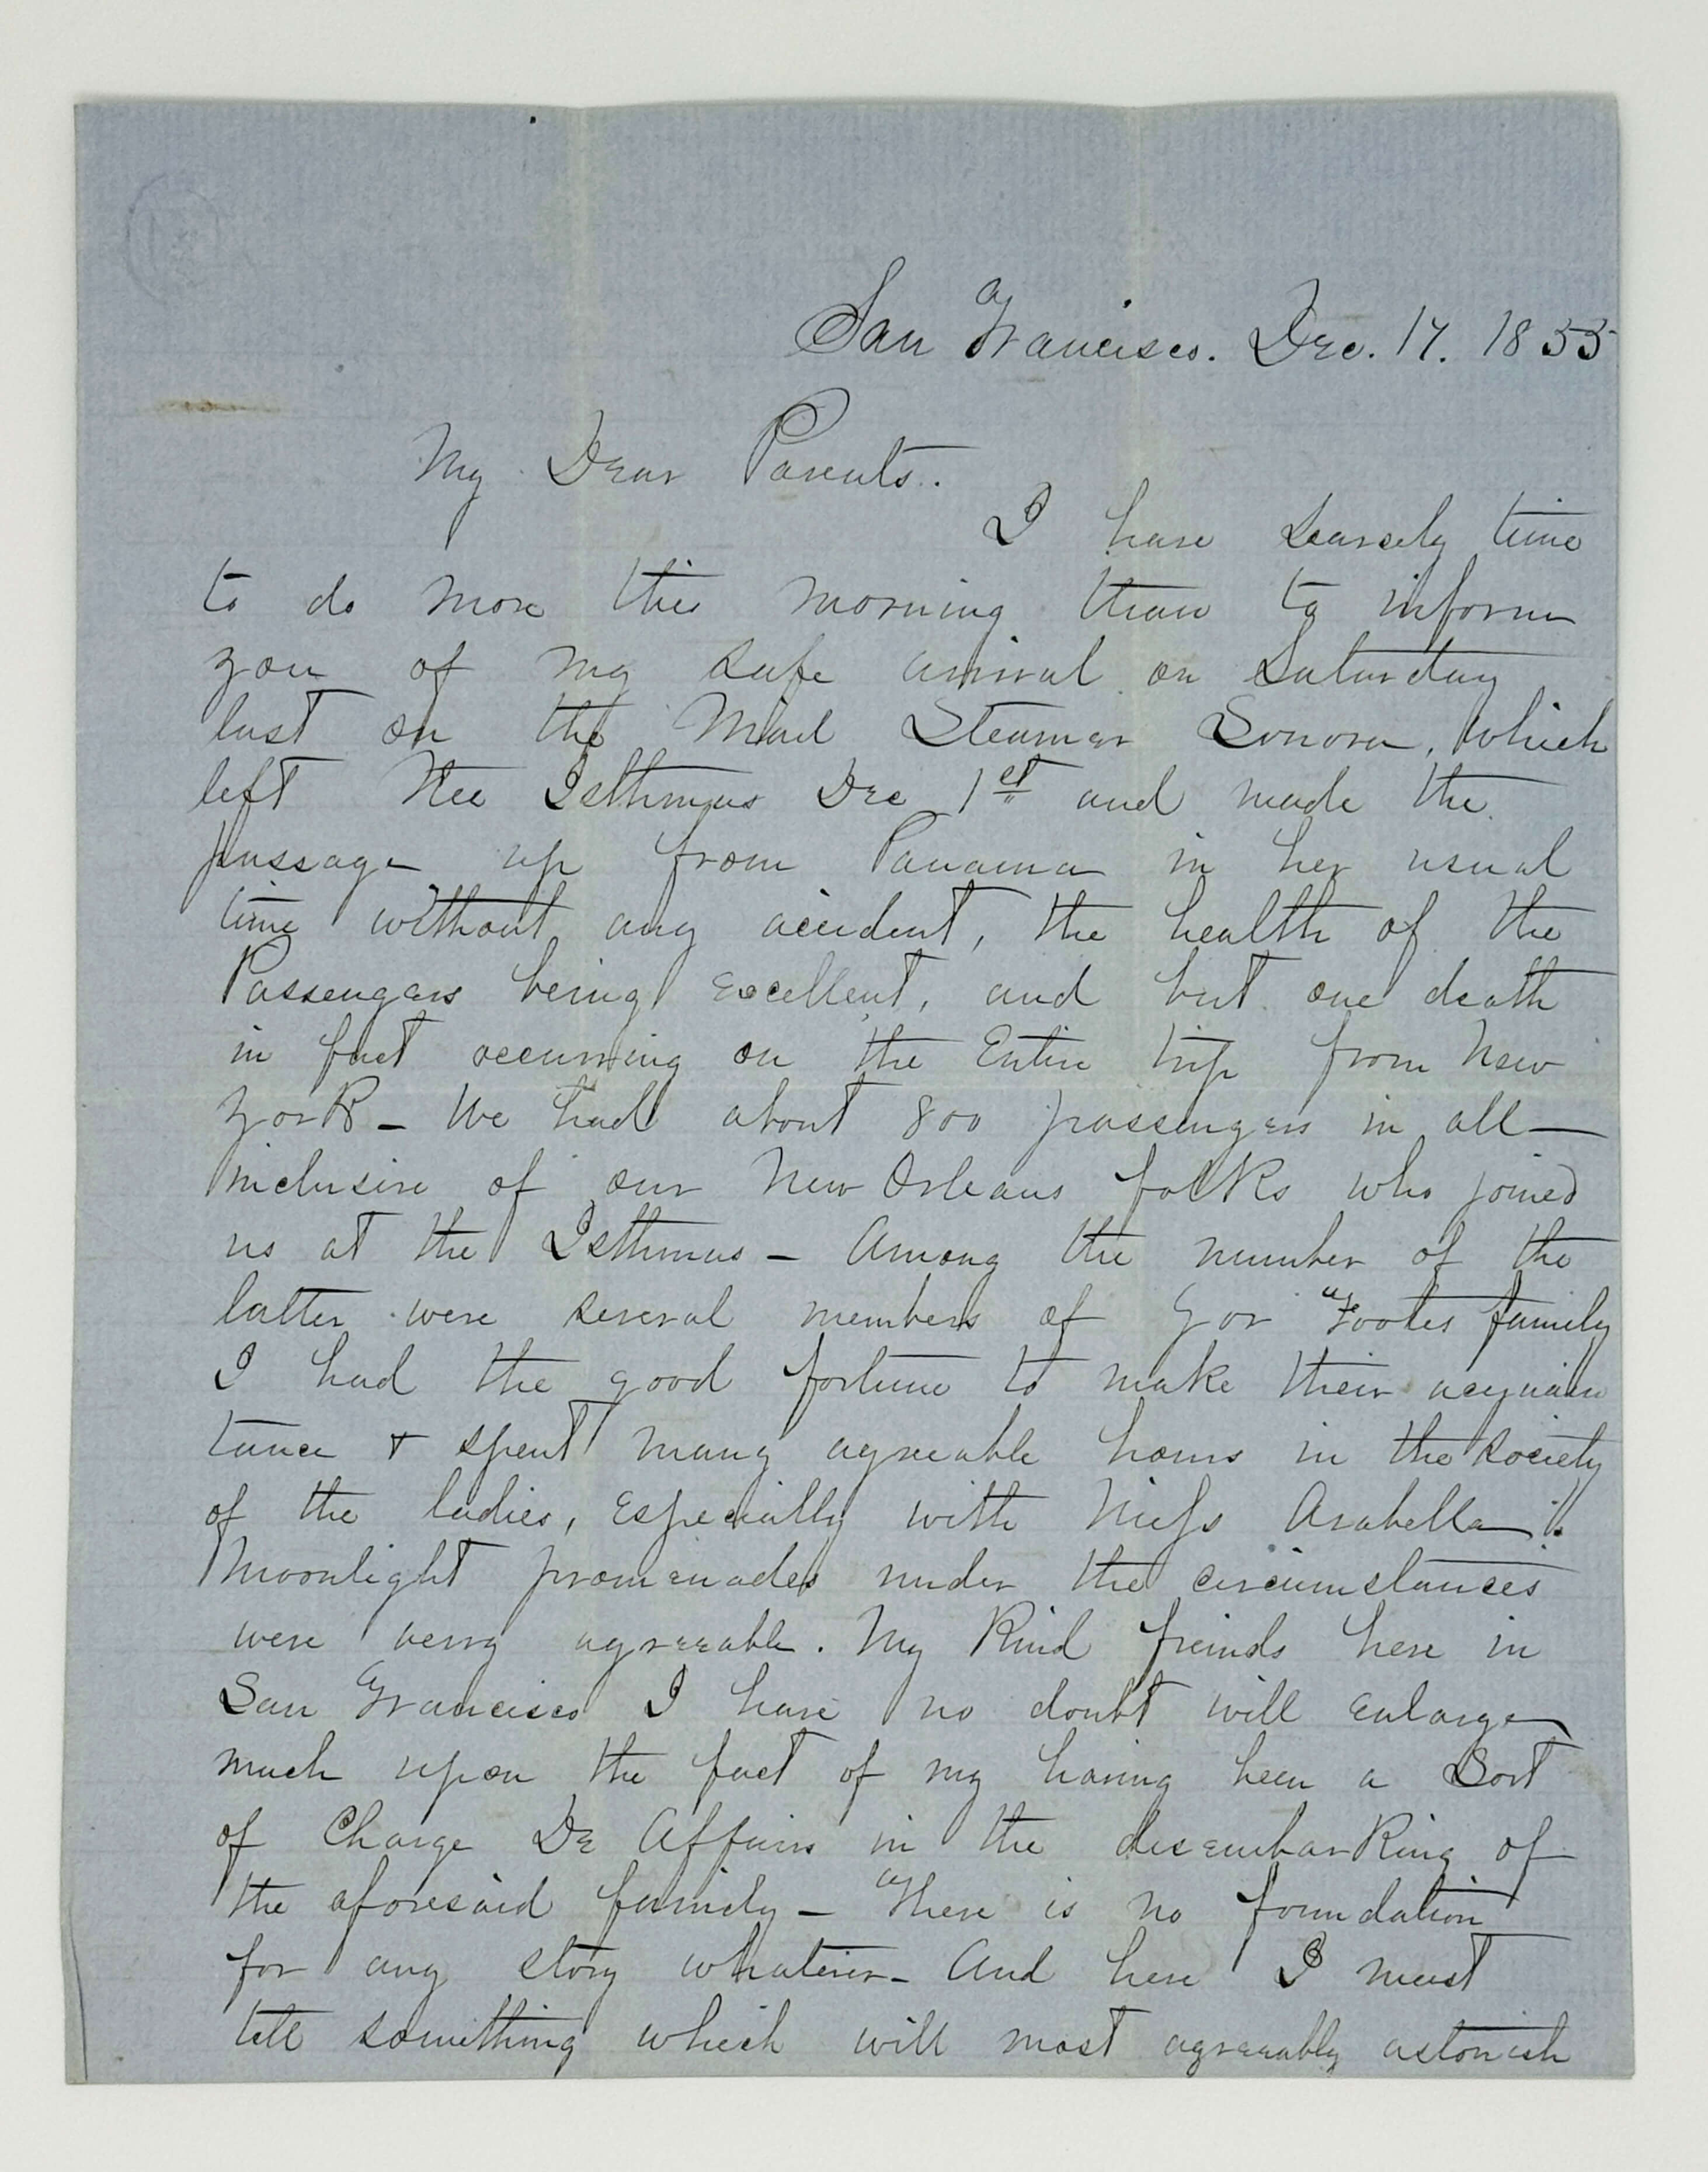 San Francisco. Dec. 17. 1855
My Dear Parents..
I have scarcely time
to do more this morning than to inform
you of my safe arrival on Saturday
last on the Mail Steamer Sonora, which
left the Isthmus Dec 1st and made the
passage up from Panama in her usual
time without any accident, the health of the
Passengers being excellent, and but one death
in fact occurring on the Entire trip from New
York – We had about 800 passengers in all –
inclusive of our New Orleans folks who joined
us at the Isthmus – Among the number of the
latter were several members of Gov Footes family
I had the good fortune to make their acquain
tance & spent many agreeable hours in the society
of the ladies, Especially with Miss Arabella !!
Moonlight promenades under the circumstances
were very agreeable. My Kind freinds here in
San Francisco I have no doubt will enlarge
much upon the fact of my having been a Sort
of Charge De Affairs in the disembarking of
the aforesaid family – There is no foundation
for any story whatever – And here I must
tell something which will most agreeably astonish